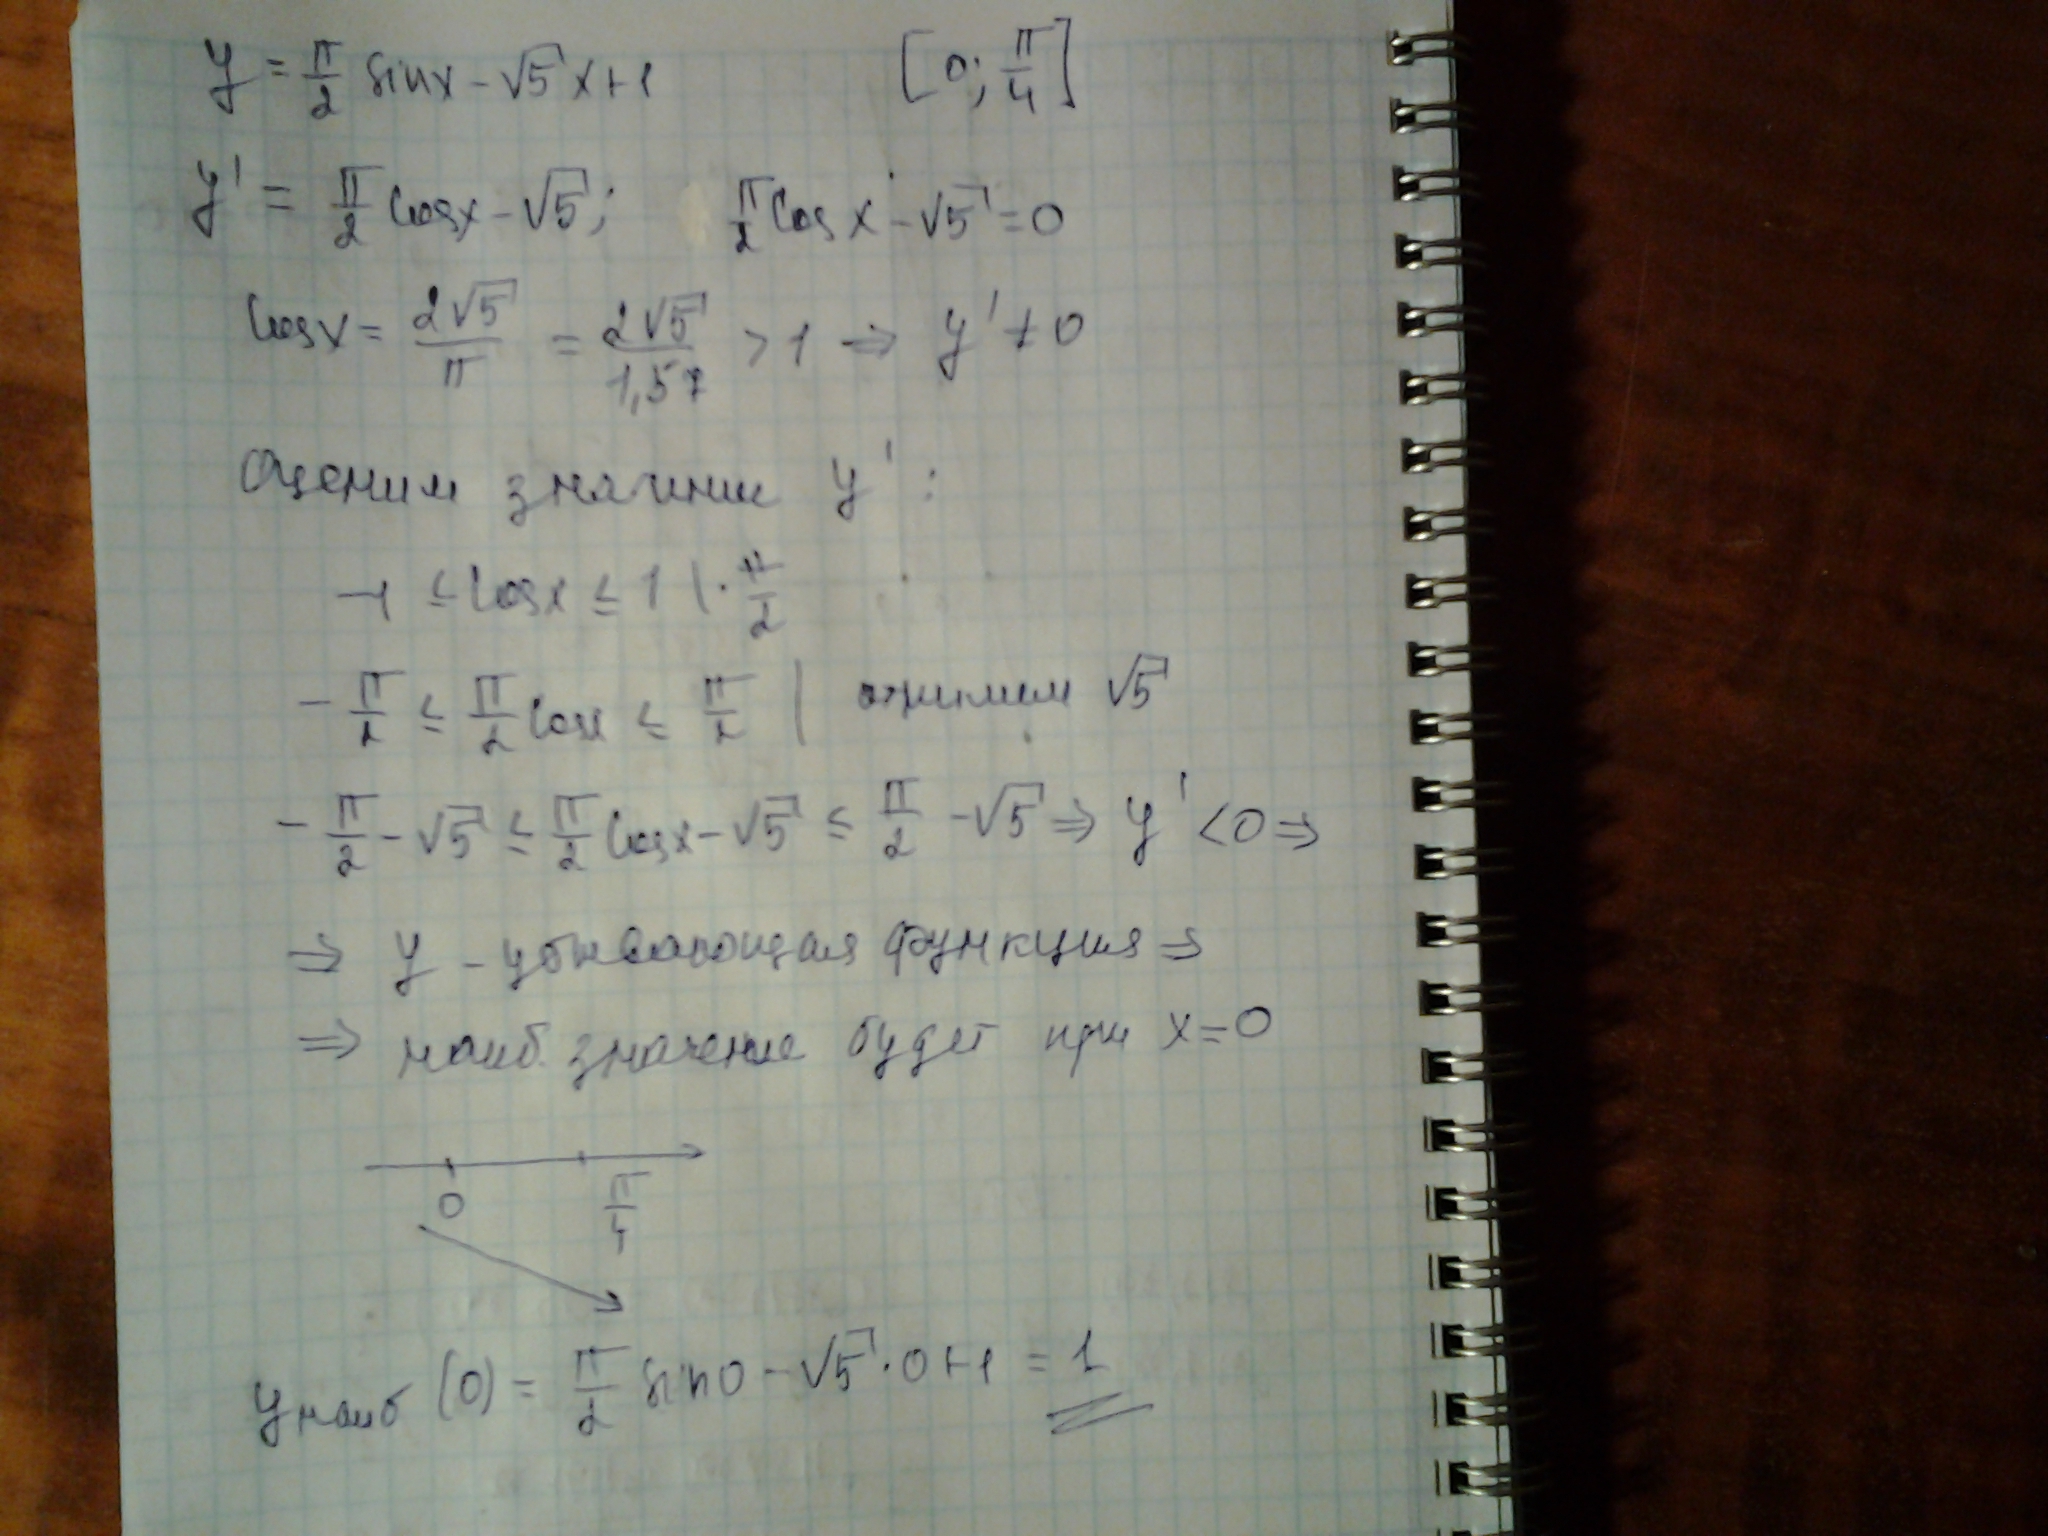 y = π/2 sinx - √5 x + 1 [0; π/4]
y' = π/2 cosx - √5; π/2 cos x - √5 = 0
cosx = 2√5/π = 2√5/1,57 > 1 ⇒ y' ≠ 0
Оценим значение y':
-1 ≤ cosx ≤ 1 | · π/2
-π/2 ≤ π/2 cosx ≤ π/2 | отнимем √5
-π/2 - √5 ≤ π/2 cosx - √5 ≤ π/2 - √5 ⇒ y' < 0 ⇒
⇒ y - убывающая функция ⇒
⇒ наиб. значение будет при x = 0
0 π/4
y наиб (0) = π/2 sin0 - √5 · 0 + 1 = 1